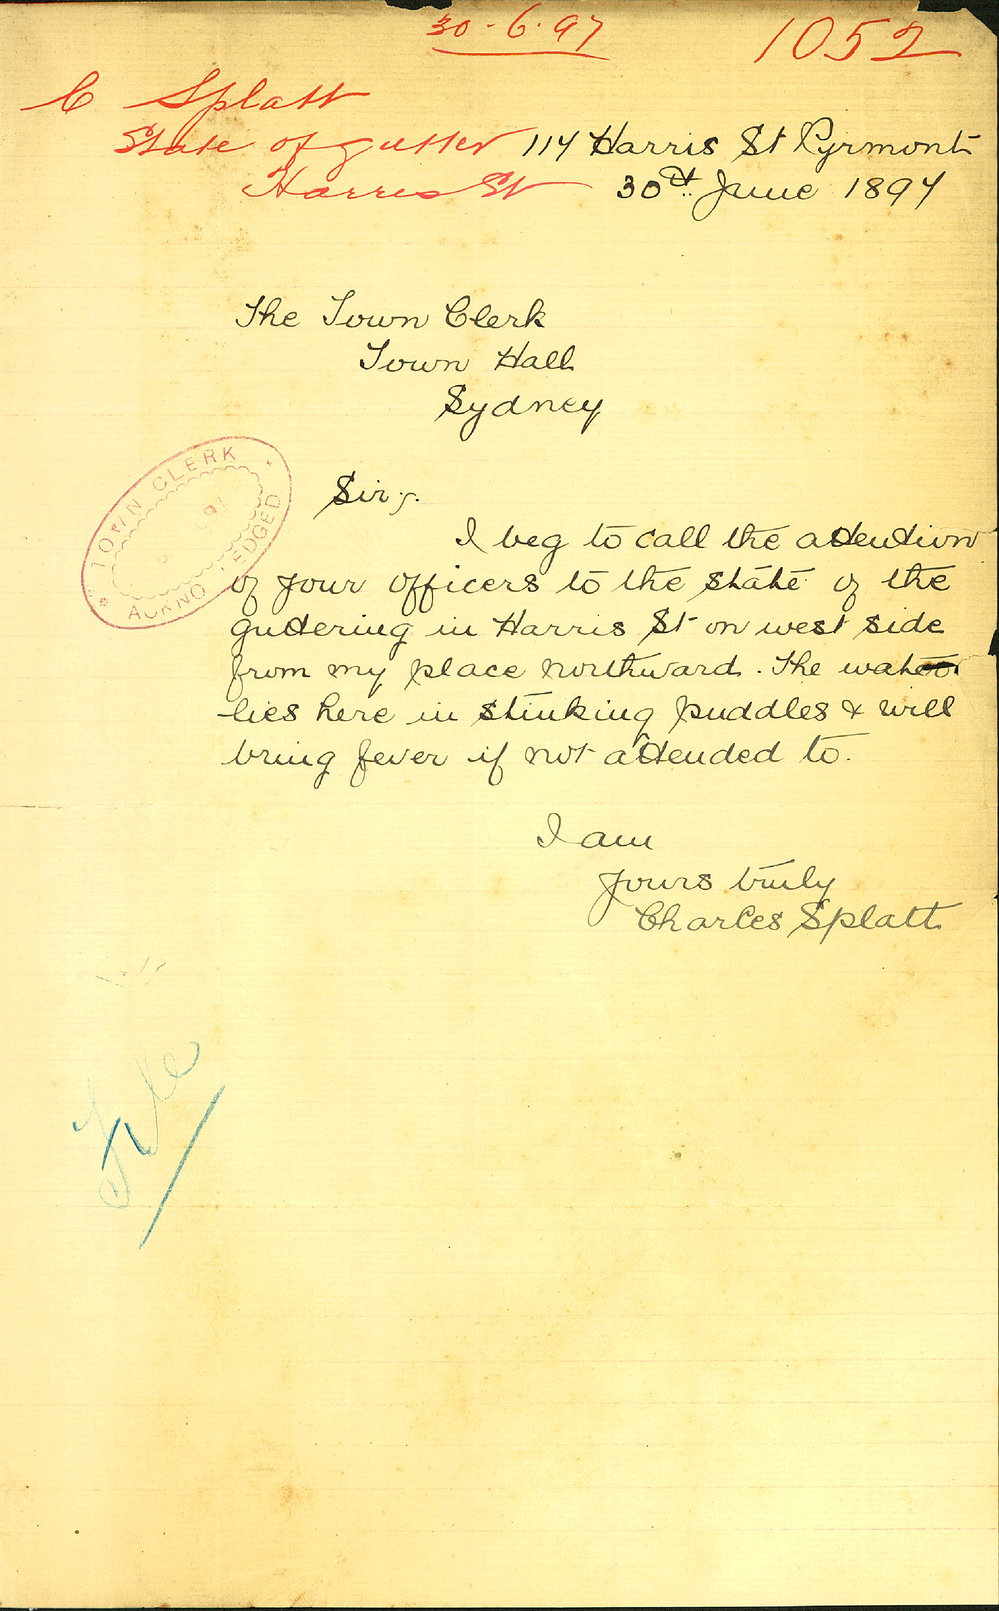 30-6-97
1052
C Splatt
State of gutter
Harris St
114 Harris St Pyrmont
30th June 1897
The Town Clerk
Town Hall
Sydney
TOWN CLERK
97
ACKNOWLEDGED
Sir,
I beg to call the attention
of your officers to the state of the
guttering in Harris St on west side
from my place northward. The water
lies here in stinking puddles & will
bring fever if not attended to.
I am
Yours truly
Charles Splatt
File